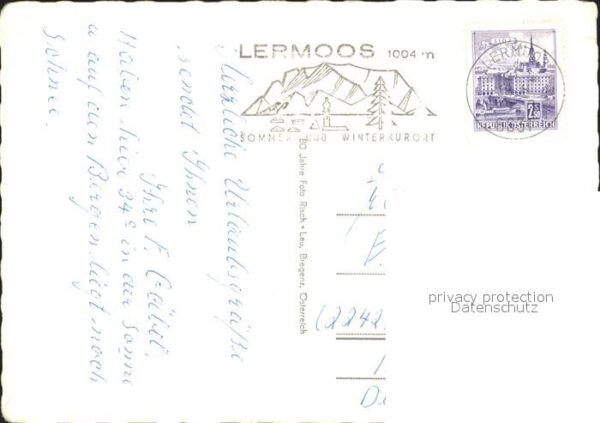 LERMOOS 1004 m
SOMMER UND WINTERKURORT
LERMOOS
2S
REPUBLIK ÖSTERREICH
Herzliche Urlaubsgrüße
sendet Ihnen
Ihre F.
Haben hier 34° in der Sonne
u auf den Bergen liegt noch
Schnee.
80 Jahre Foto Risch • Lau, Bregenz, Österreich
(2242
privacy protection
Datenschutz